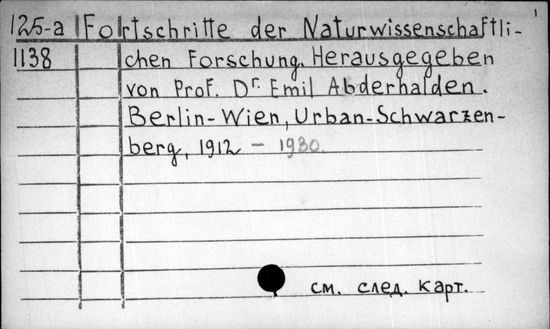 125-a Fortschritte der Naturwissenschaftli-
1138 chen Forschung. Herausgegeben
von Prof. Dr. Emil Abderhalden.
Berlin-Wien, Urban-Schwarzen-
berg, 1912 - 1930.
см. след. карт.